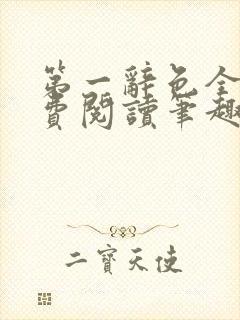 第一辭色全
費閱讀筆趣
二寶天使